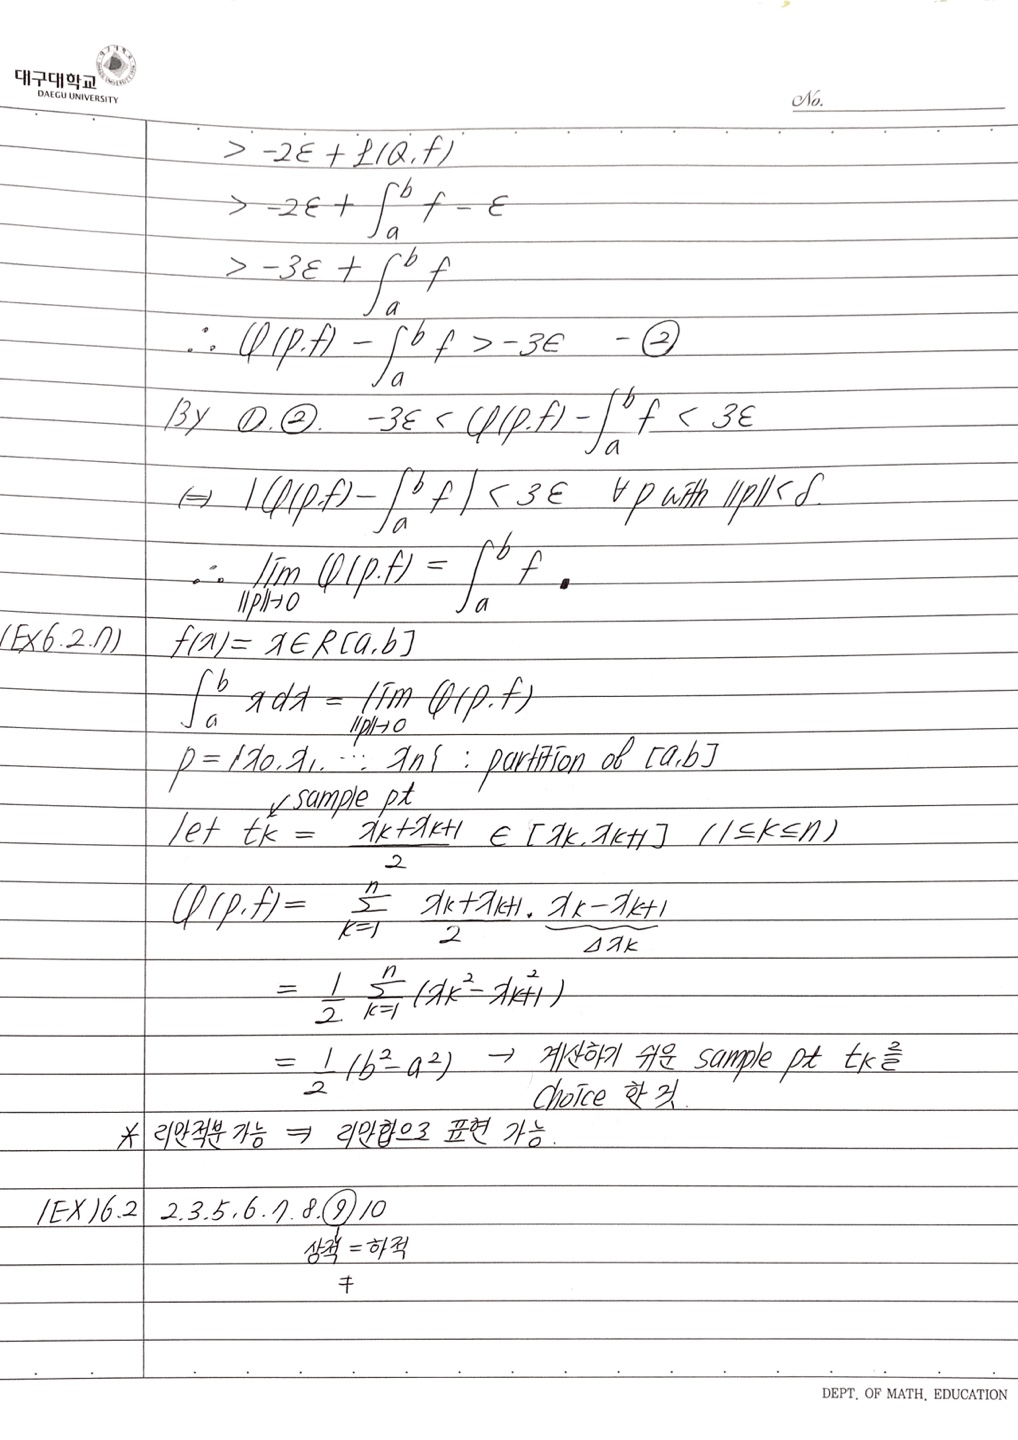 대구대학교
DAEGU UNIVERSITY
No.
> -2ε + £(Q.f)
> -2ε + ∫_a^b f - ε
> -3ε + ∫_a^b f
∴ φ(p.f) - ∫_a^b f > -3ε - ②
By ①.②. -3ε < φ(p.f) - ∫_a^b f < 3ε
⇔ |φ(p.f) - ∫_a^b f| < 3ε ∀p with ||p|| < δ.
∴ lim_{||p||→0} φ(p.f) = ∫_a^b f .
(Ex6.2.7) f(x) = x ∈ R[a,b]
∫_a^b x dx = lim_{||p||→0} φ(p.f)
p = {x0.x1. ⋯ xn} : partition of [a,b]
↙ sample pt
let tk = (xk+xk+1)/2 ∈ [xk.xk+1] (1≤k≤n)
φ(p.f) = Σ_{k=1}^n (xk+xk+1)/2 . xk-xk+1
Δxk
= 1/2 Σ_{k=1}^n (xk²-xk+1²)
= 1/2 (b²-a²) → 계산하기 쉬운 sample pt tk를
choice 한 것.
* 리만적분 가능 ⇒ 리만합으로 표현 가능.
(EX)6.2 2.3.5.6.7.8.⑨10
상적 = 하적
≠
DEPT. OF MATH. EDUCATION